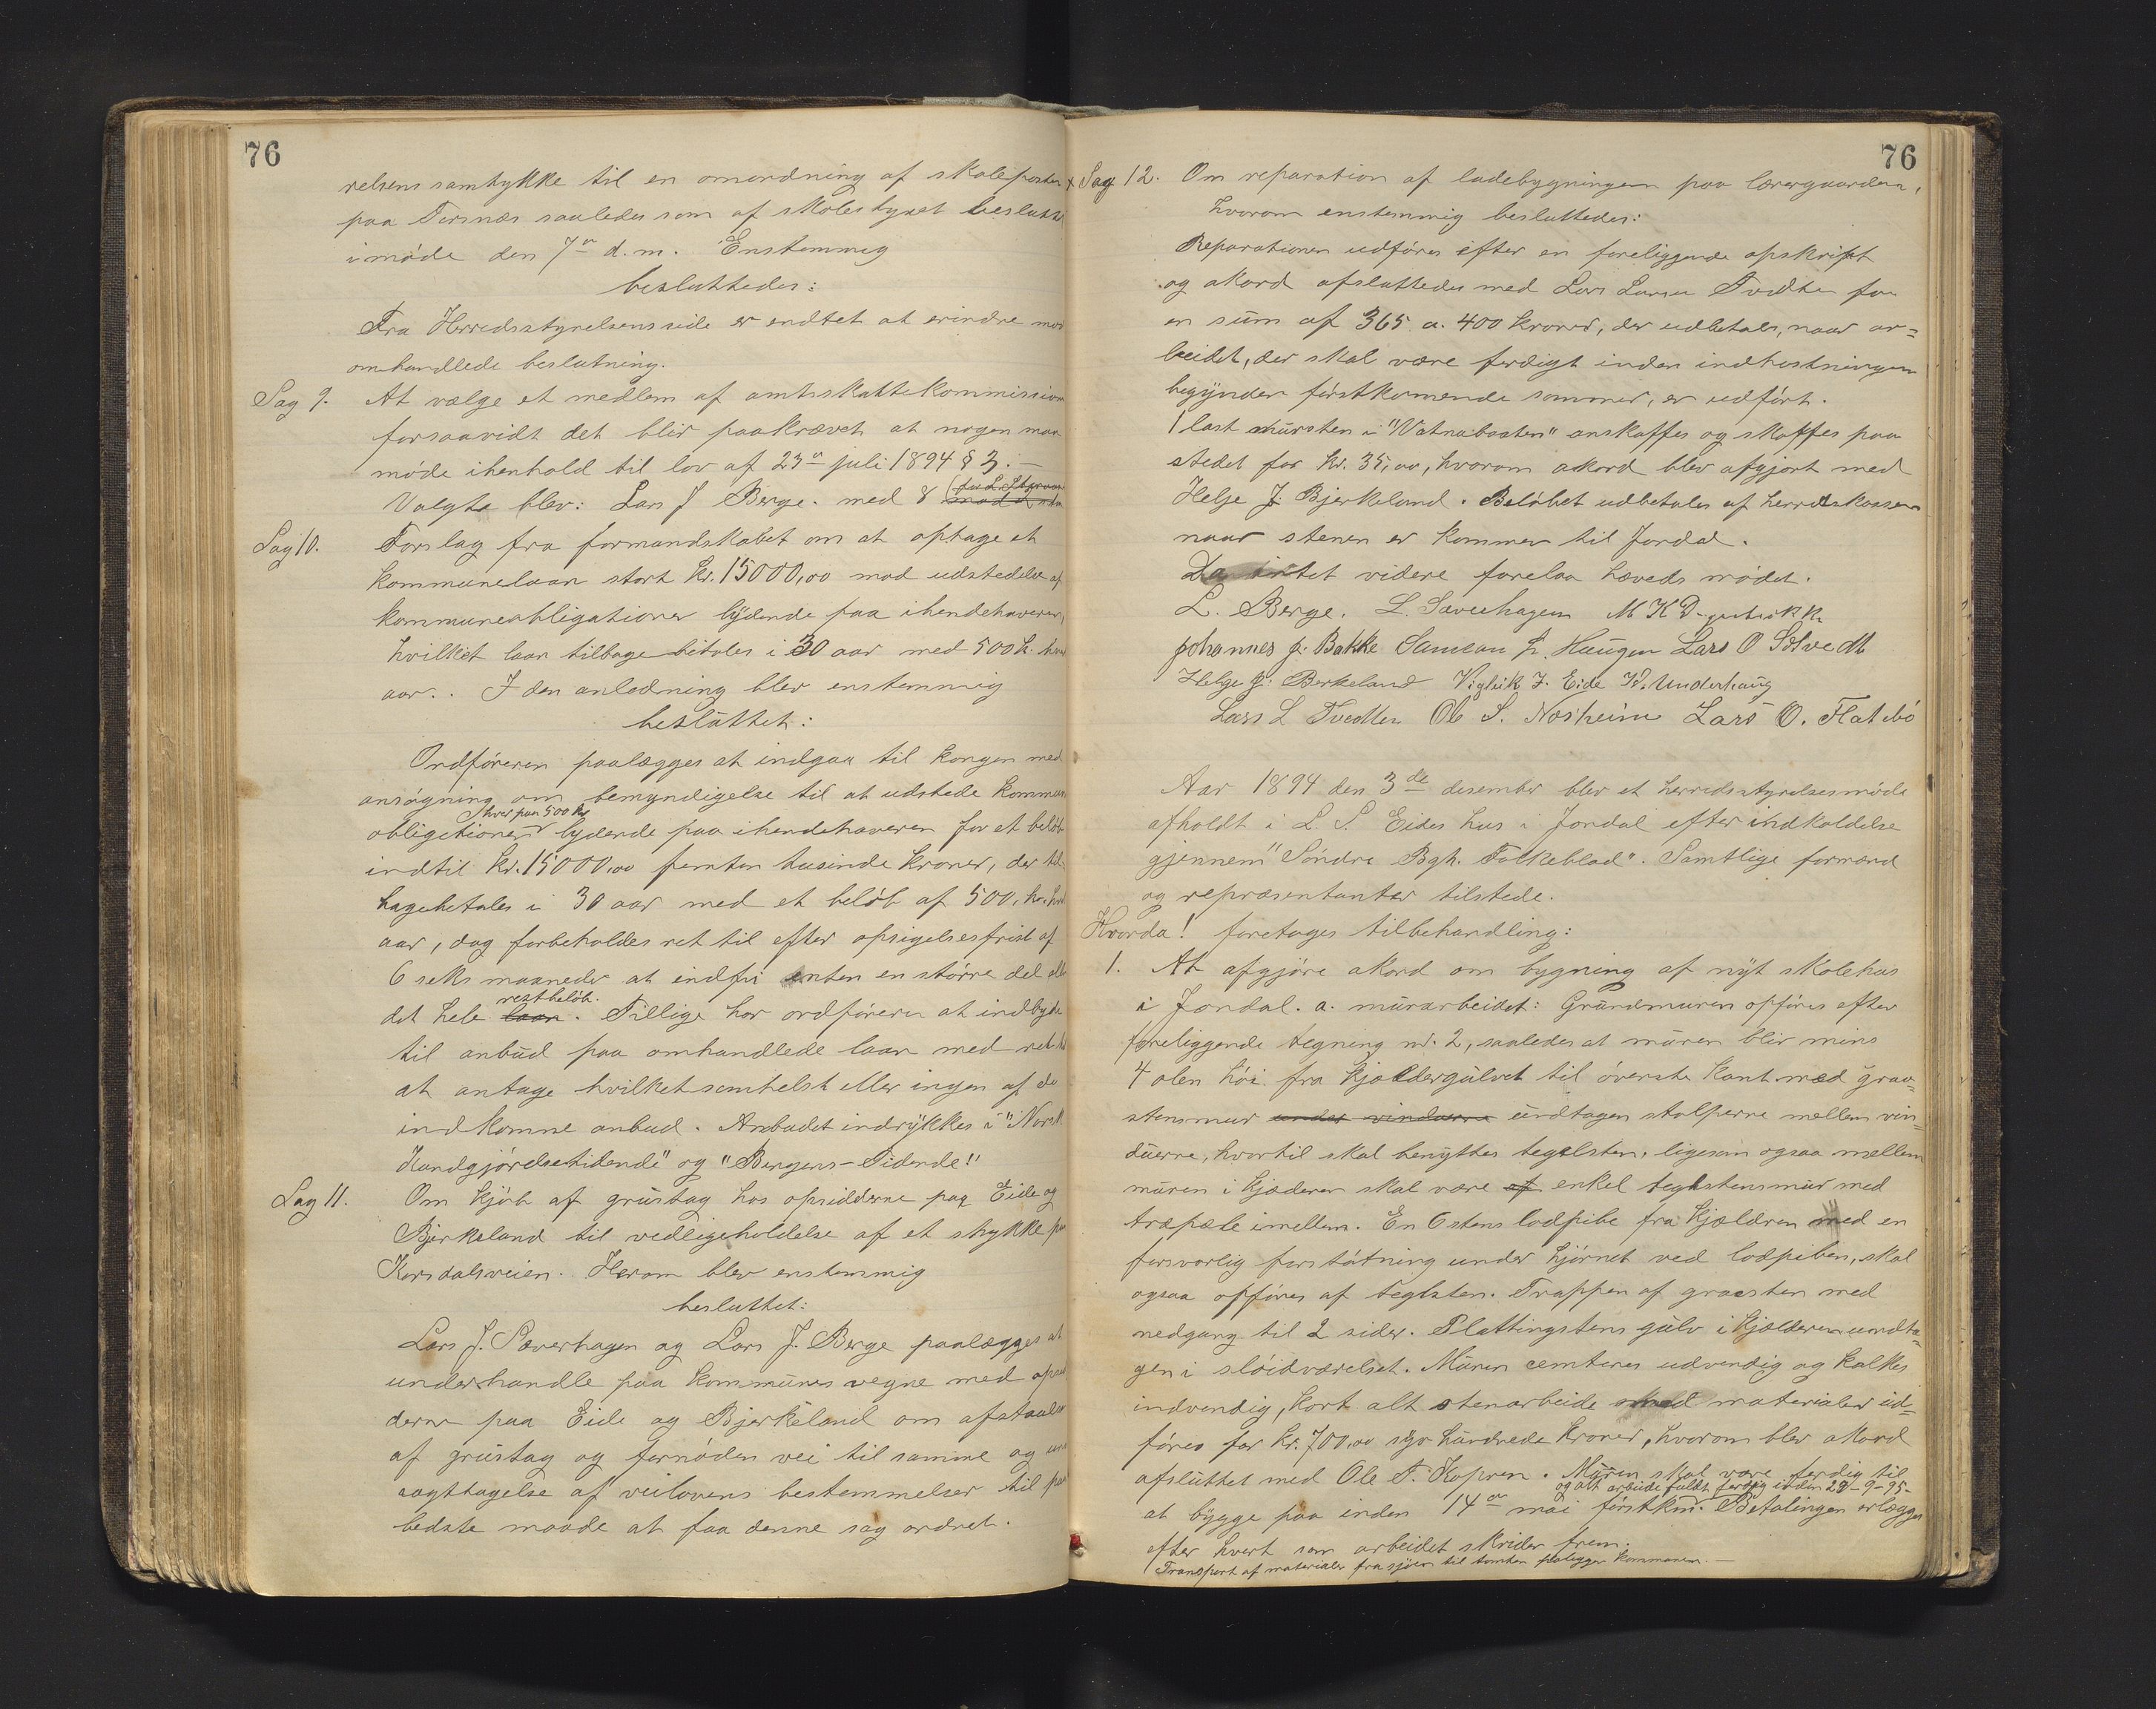 76
relsens samtykke til en omordning af skoleposten
paa Torsnæs saaledes som af skolestyret beslutt
i møde den 7de d.m. Enstemmig
besluttedes:
Fra Herredsstyrelsens side er endtet at erindre mod
omhandlede beslutning.
Sag 9. At vælge et medlem af amtsskattekommissionen
forsaavidt det blir paakrævet at nogen maa
møde ihenhold til lov af 23de juli 1894 § 3. —
Valgte blev: Lars J Berge. med 8
Sag 10. Forslag fra formandskabet om at optage et
kommunelaan stort kr. 15000,00 mod udstedelse af
kommuneobligationer lydende paa ihendehaveren,
hvilket laan tilbagebetales i 30 aar med 500 k. hver
aar. . I den anledning blev enstemmig
besluttet:
Ordføreren paalægges at indgaa til kongen med
ansøgning om bemyndigelse til at udstede kommune
hver paa 500 kr
obligationer lydende paa ihendehaveren for et beløb
indtil kr. 15000,00 femten tusinde kroner, der til-
bagebetales i 30 aar med et beløb af 500, kr. hvert
aar, dog forbeholdes ret til efter opsigelsesfrist af
6 seks maaneder at indfri enten en større del eller
restbeløb.
det hele laan. Tillige har ordføreren at indbyde
til anbud paa omhandlede laan med ret til
at antage hvilketsomhelst eller ingen af de
indkomne anbud. Anbudet indrykkes i "Norsk
Kundgjørelsetidende" og "Bergens-Tidende"
Sag 11. Om kjøb af grustag hos opsidderne paa Eide og
Bjerkeland til vedligeholdelse af et stykke paa
Korsdalsveien. Herom blev enstemmig
besluttet:
Lars J. Saverhagen og Lars J. Berge paalægges at
underhandle paa kommunes vegne med opsid
derne paa Eide og Bjerkeland om afstaaelse
af grustag og fornøden vei til samme og
iagttagelse af veilovens bestemmelser til paa
bedste maade at faa denne sag ordnet.
76
Sag 12. Om reparation af ladebygningen paa lærergaarden,
hvorom enstemmig besluttedes:
Reparationen udføres efter en foreliggende opskrift
og akord afsluttedes med Lars Larsen Tvedten for
en sum af 365 a. 400 kroner, der udbetales, naar ar=
beidet, der skal være ferdigt inden indhøstningen
begynder førstkomende sommer, er udført.
1 last mursten i "Vatnabaaten" anskaffes og skaffes paa
stedet for kr. 35,00, hvorom akord blev afgjort med
Helje J. Bjerkeland. Beløbet udbetales af herredskassen
naar stenen er kommen til Jondal.
Da intet videre forelaa hæveds mødet.
L. Berge. L. Saverhagen M K
Johannes J: Bakke Samson L. Haugen Lars O Solvedt
Helge J: Berkeland Vigleik J. Eide W. Underhaug
Lars L Tvedten Ole S. Næsheim Lars O. Flatebø
Aar 1894 den 3de desember blev et herredsstyrelsesmøde
afholdt i L. S. Eides hus i Jondal efter indkaldelse
gjennem "Søndre Bgh. Folkeblad". Samtlige formænd
og repræsentanter tilstede.
Hvorda! foretages tilbehandling:
1. At afgjøre akord om bygning af nyt skolehus
i Jondal. a. murarbeidet: Grundmuren opføres efter
foreliggende tegning nr. 2, saaledes at muren blir mins
4 alen høi fra kjældergulvet til øverste kant med graa=
stensmur under vinduerne undtagen stolperne mellem vin=
duerne, hvortil skal benyttes teglsten, ligesom ogsaa mellem
muren i kjæderen skal være af enkel teglstensmur med
træpæle imellem. En 6 stens lodpibe fra kjældren med en
forsvarlig forstøtning under hjørnet ved lodpiben, skal
ogsaa opføres af teglsten. Trappen af graasten med
nedgang til 2 sider. Plattingstens gulv i kjælderen undta=
gen i sløidværelset. Muren cementeres udvendig og kalkes
indvendig, kort alt stenarbeide med materialer ud=
føres for kr. 700,00 syv hundrede kroner, hvorom blev akord
afsluttet med Ole T. Kopren. Muren skal være ferdig til
og alt arbeide fuldt ferdig inden 29-9-95-
at bygge paa inden 14de mai førstkm. Betalingen erlægges
efter hvert som arbeidet skrider frem.
Transport af materialer fra sjøen til tomten paaligger kommunen. —